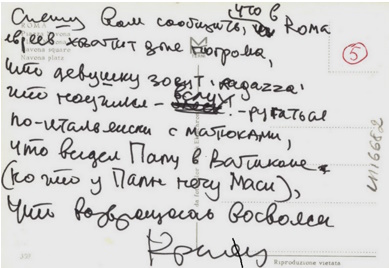 Спешу Вам сообщить, что в Roma
евреев хватит для погрома,
что девушку зовут - ragazza,
что научился - вслух - ругаться
по-итальянски с матюками,
что видел Папу в Ватикане
(но что у Папы нету Маси),
Что возвращаюсь восвояси
Piazza Navona
Navona square
Navona platz
5
Riproduzione vietata